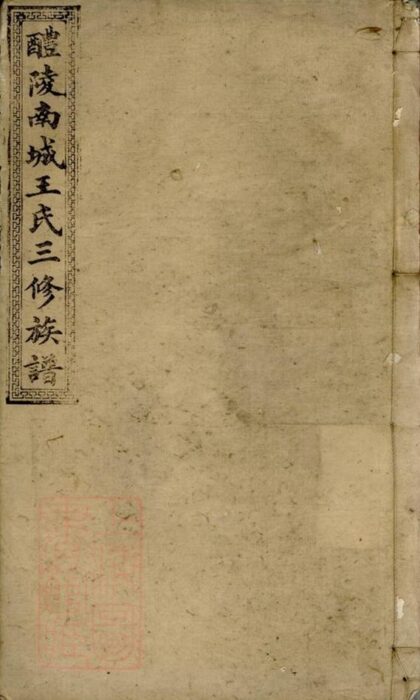 醴陵南城王氏三修族譜